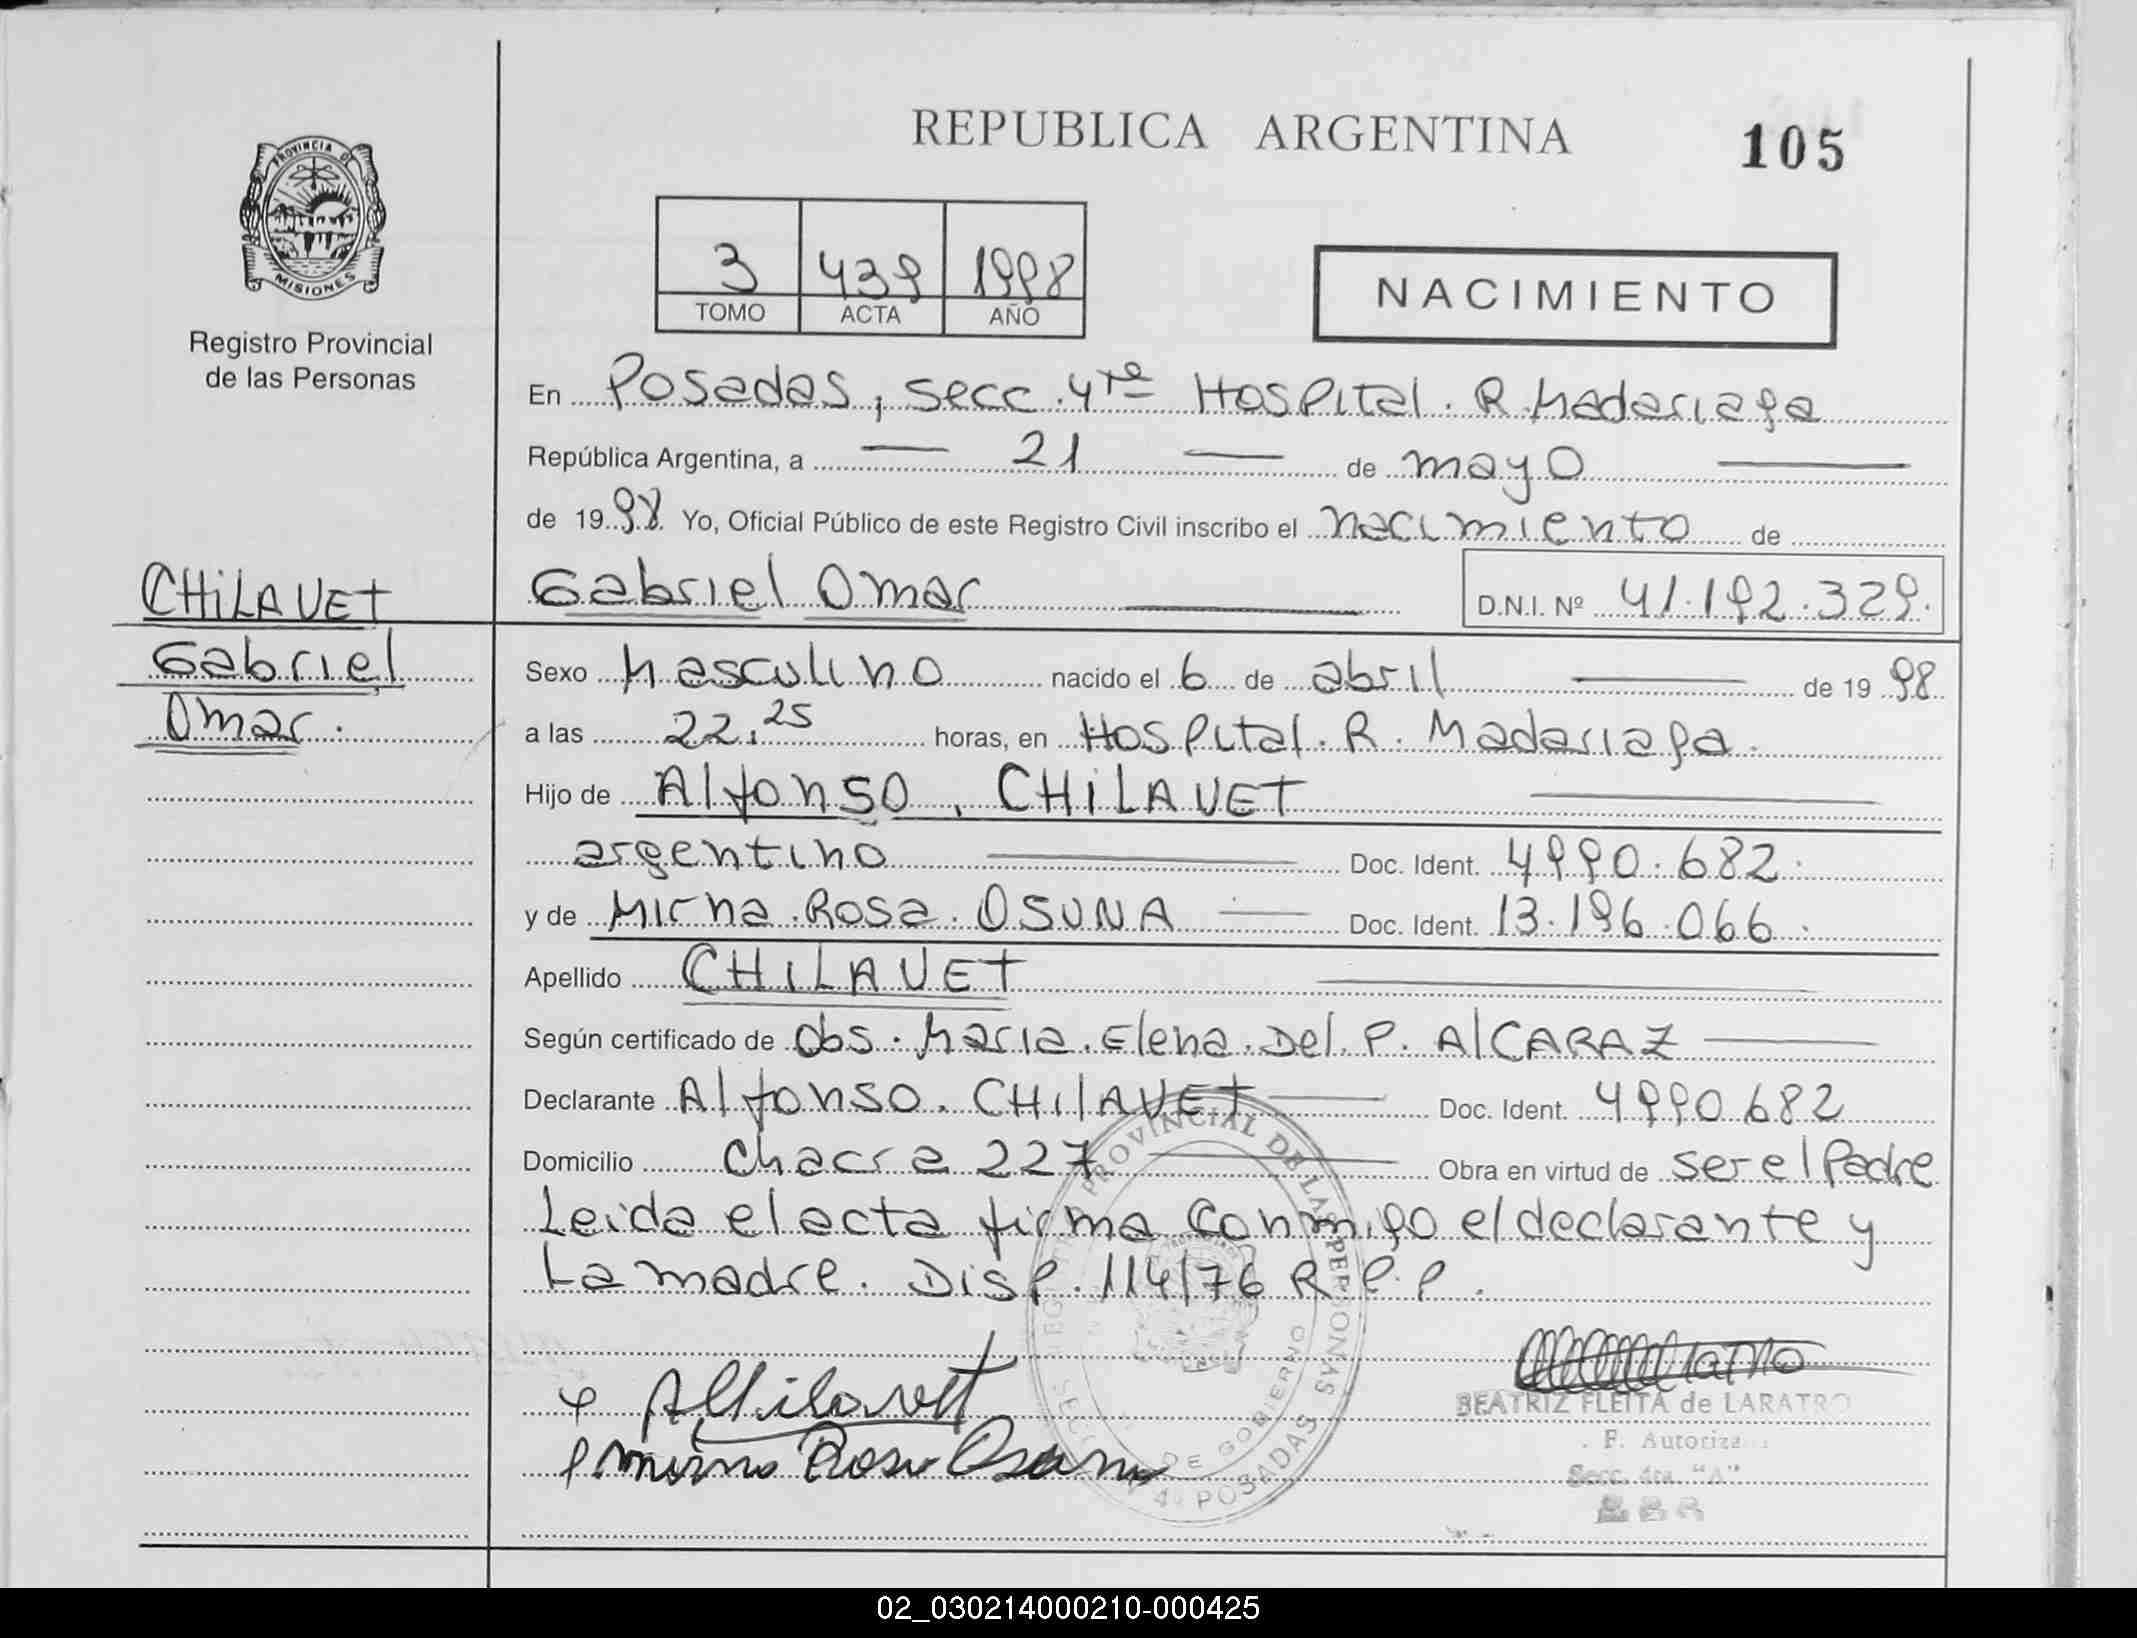 REPUBLICA ARGENTINA
105
PROVINCIA DE
MISIONES
Registro Provincial
de las Personas
3 439 1998
TOMO ACTA AÑO
NACIMIENTO
En Posadas, secc. 4ta Hospital. R. Madariaga
República Argentina, a 21 de mayo
de 1998. Yo, Oficial Público de este Registro Civil inscribo el nacimiento de
Gabriel Omar D.N.I. Nº 41.192.329.
CHILAVET
Gabriel
Omar.
Sexo Masculino nacido el 6 de abril de 1998
a las 22.25 horas, en Hospital. R. Madariaga.
Hijo de Alfonso. CHILAVET
argentino Doc. Ident. 4990.682.
y de Mirna. Rosa. OSUNA Doc. Ident. 13.196.066.
Apellido CHILAVET
Según certificado de Obs. Maria. Elena. Del. P. AlCARAZ
Declarante Alfonso. CHilAVET Doc. Ident. 4990682
Domicilio Chacra 227 Obra en virtud de ser el Padre
Leida el acta firma conmigo el declarante y
La madre. Disp. 114/76 R.P.P.
REGISTRO PROVINCIAL DE LAS PERSONAS
DE GOBIERNO
POSADAS
AChilavet
Mirna Rosa Osuna
BEATRIZ FLEITA de LARATRO
F. Autoriza
Secc. 4ta. "A"
02_030214000210-000425